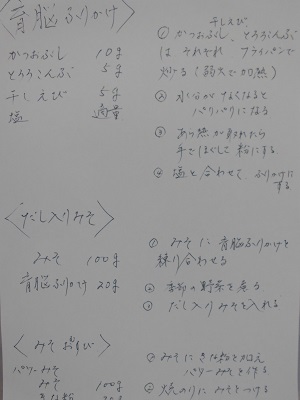 〈育脳ふりかけ〉
かつおぶし 10g
とろろこんぶ 5g
干しえび 5g
塩 適量
干しえび
① かつおぶし、とろろこんぶ
は それぞれ フライパンで
炒る(弱火で加熱)
② 水分がなくなると
パリパリになる
③ あら熱が取れたら
手でほぐして粉にする
④ 塩と合わせて ふりかけに
する
〈だし入りみそ〉
みそ 100g
育脳ふりかけ 20g
① みそに育脳ふりかけを
練り合わせる
② 季節の野菜を煮る
③ だし入りみそを入れる
〈みそおむすび〉
パワーみそ
みそ 100g
きな粉 20g
① みそにきな粉を加え
パワーみそを作る
② 焼のりにみそをつける